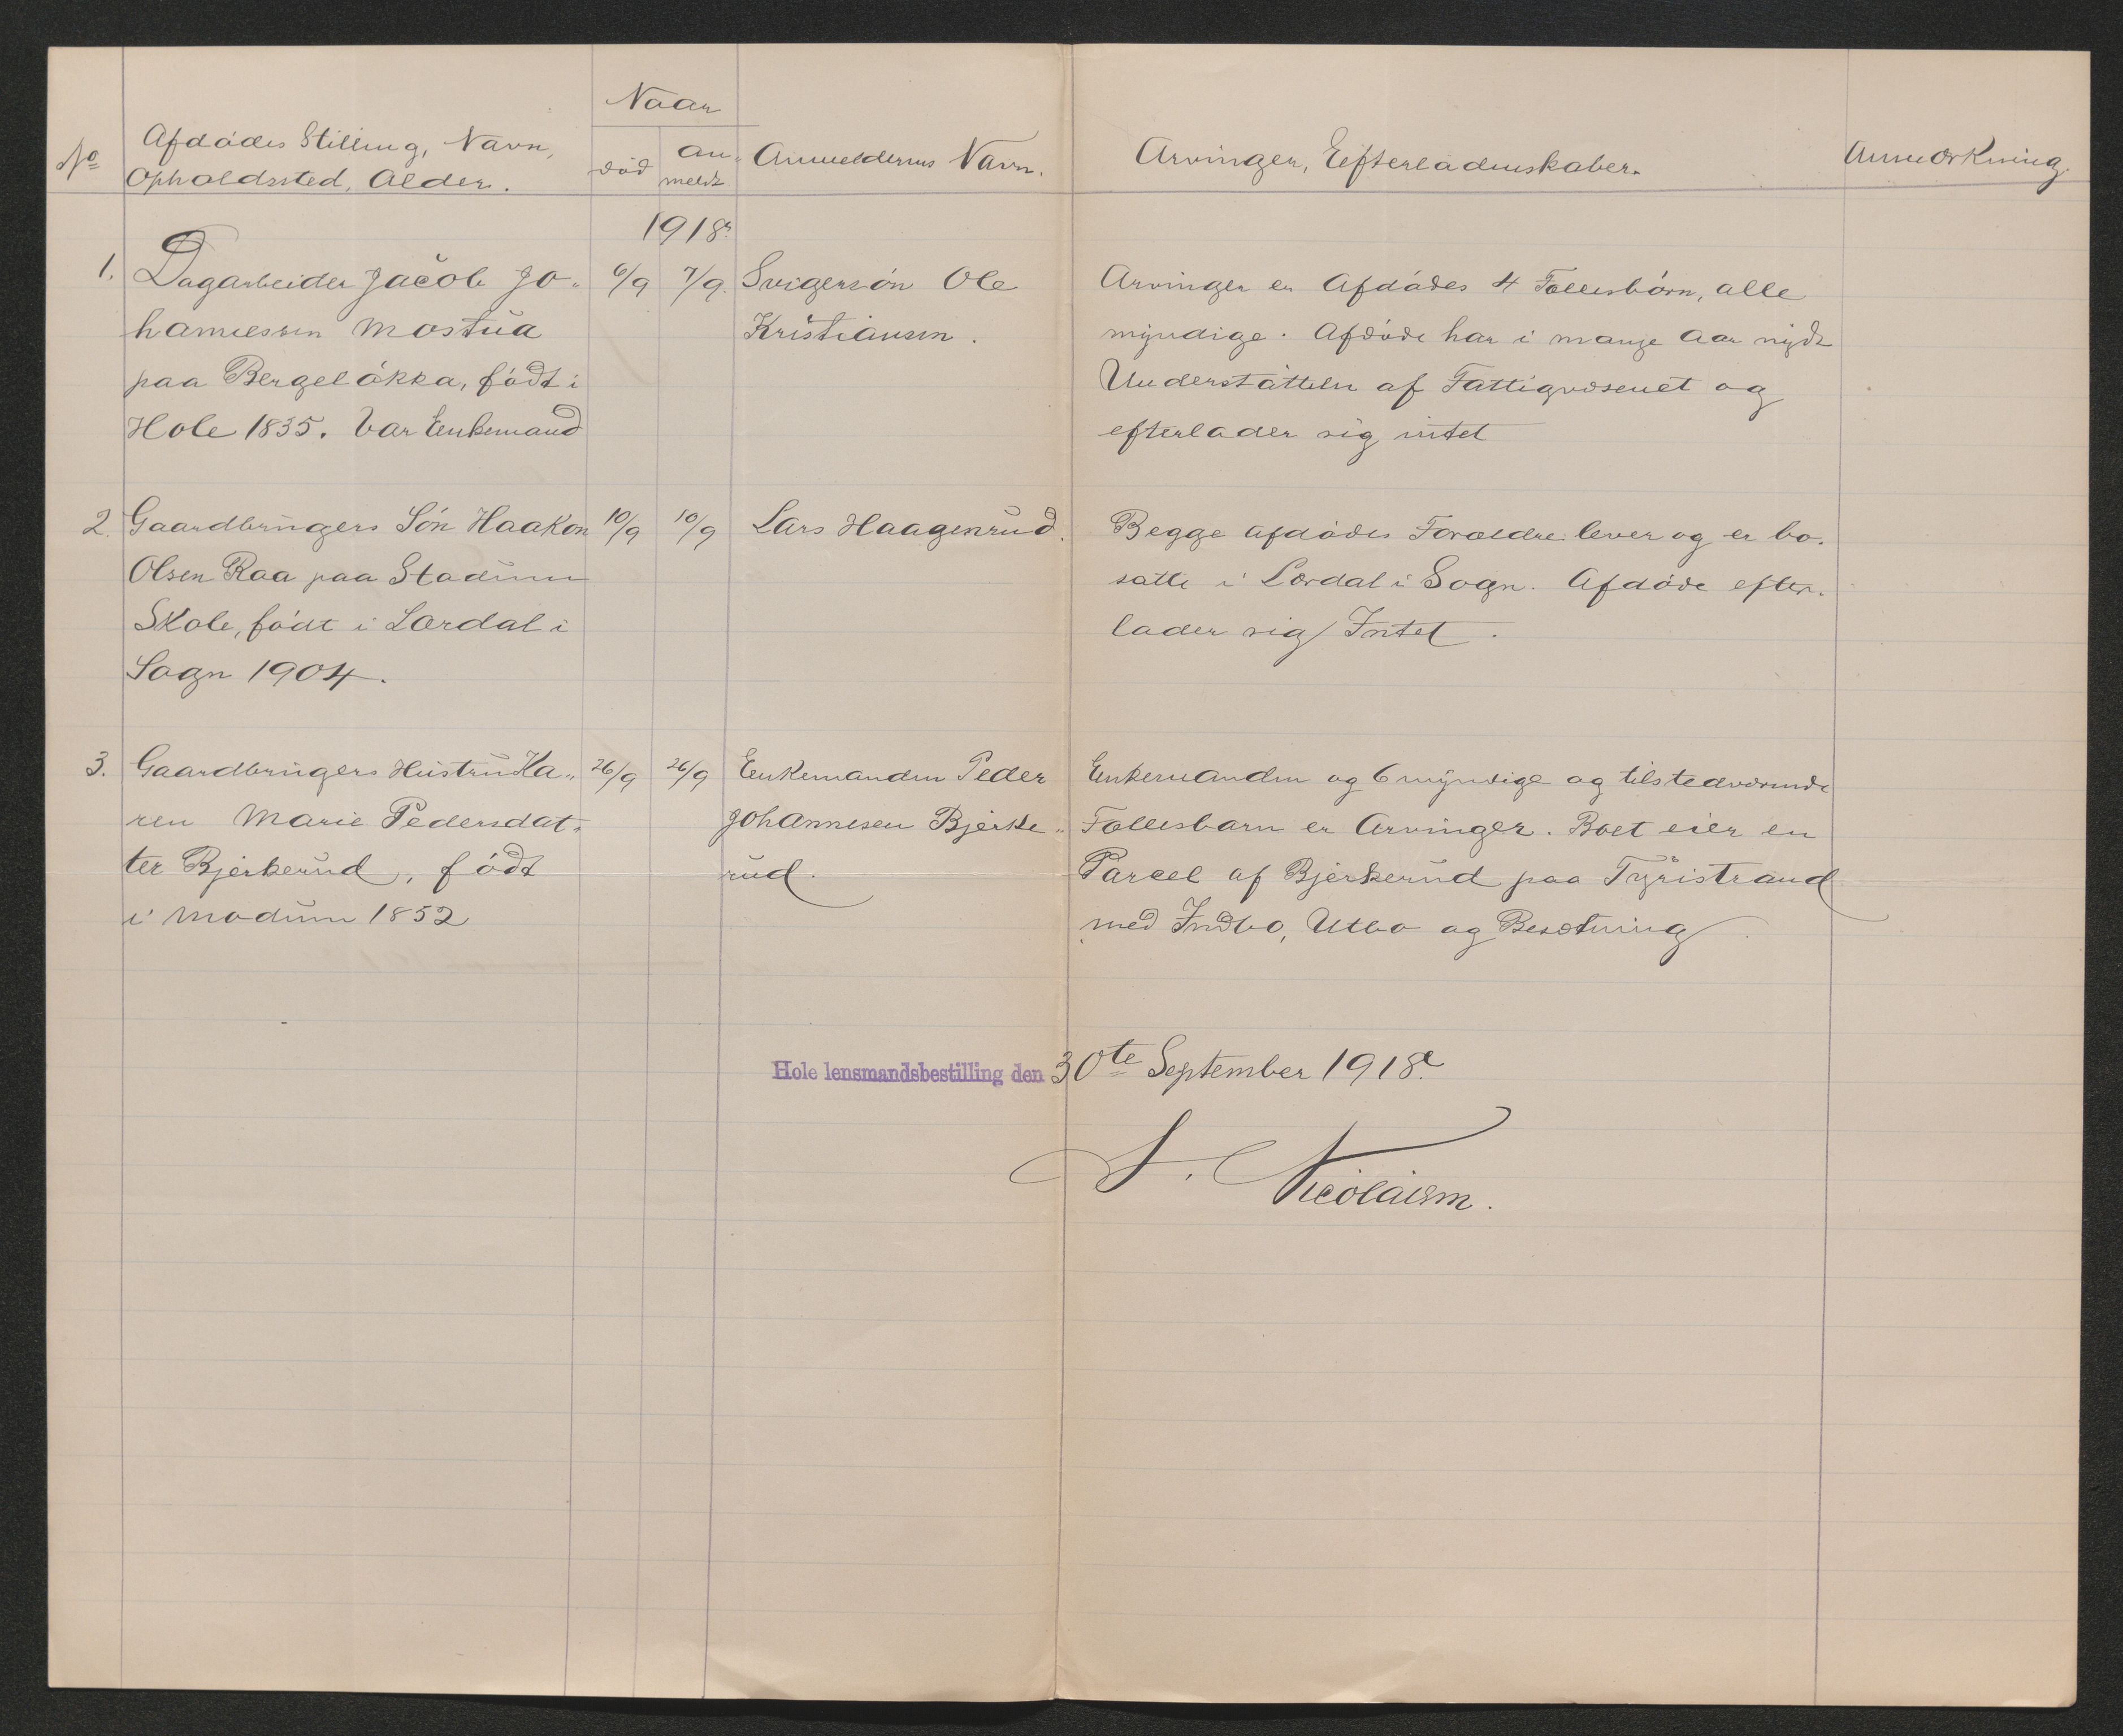 Naar
No Afdødes Stilling, Navn, Opholdssted, Alder. død anmeldt Anmelderens Navn. Arvinger, Efterladenskaber. Anmærkning.
1918.
1. Dagarbeider Jacob Jo- 6/9 7/9. Svigersøn Ole Arvinger er Afdødes 4 Fællesbørn, alle
hannessen Mostua Kristiansen. myndige. Afdøde har i mange Aar nydt
paa Bergeløkka, født i Understøttelse af Fattigvæsenet og
Hole 1835. Var Enkemand efterlader sig intet
2. Gaardbrugers Søn Haakon 10/9 10/9 Lars Haagenrud. Begge afdødes Forældre lever og er bo-
Olsen Raa paa Stadum satte i Lærdal i Sogn. Afdøde efter-
Skole, født i Lærdal i lader sig Intet.
Sogn 1904.
3. Gaardbrugers Hustru Ka- 26/9 26/9 Enkemanden Peder Enkemanden og 6 myndige og tilstedværende
ren Marie Pedersdat- Johannesen Bjerke- Fællesbarn er Arvinger. Boet eier en
ter Bjerkerud, født rud. Parcel af Bjerkerud paa Tyristrand
i Modum 1852 med Indbo, Utbo og Besætning
Hole lensmandsbestilling den 30te September 1918.
Nicolaisen.